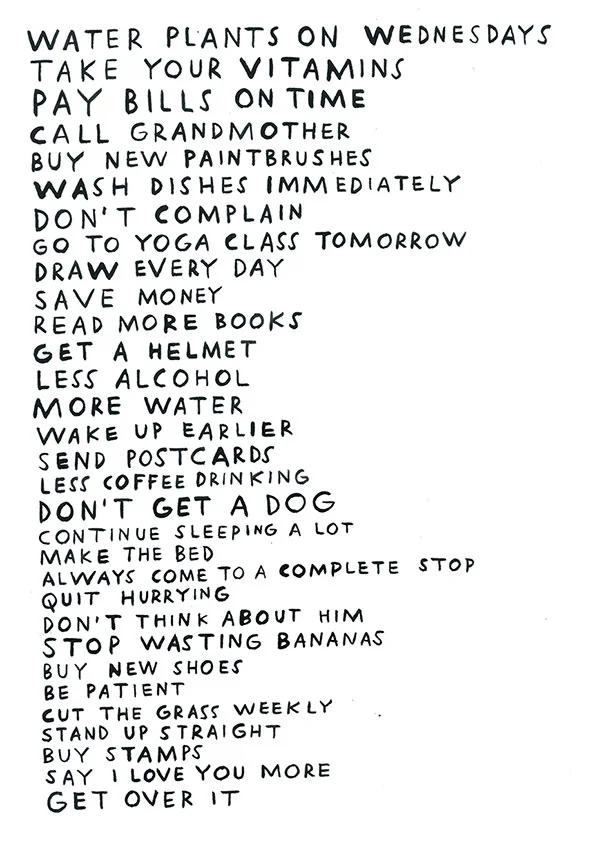 WATER PLANTS ON WEDNESDAYS
TAKE YOUR VITAMINS
PAY BILLS ON TIME
CALL GRANDMOTHER
BUY NEW PAINTBRUSHES
WASH DISHES IMMEDIATELY
DON'T COMPLAIN
GO TO YOGA CLASS TOMORROW
DRAW EVERY DAY
SAVE MONEY
READ MORE BOOKS
GET A HELMET
LESS ALCOHOL
MORE WATER
WAKE UP EARLIER
SEND POSTCARDS
LESS COFFEE DRINKING
DON'T GET A DOG
CONTINUE SLEEPING A LOT
MAKE THE BED
ALWAYS COME TO A COMPLETE STOP
QUIT HURRYING
DON'T THINK ABOUT HIM
STOP WASTING BANANAS
BUY NEW SHOES
BE PATIENT
CUT THE GRASS WEEKLY
STAND UP STRAIGHT
BUY STAMPS
SAY I LOVE YOU MORE
GET OVER IT